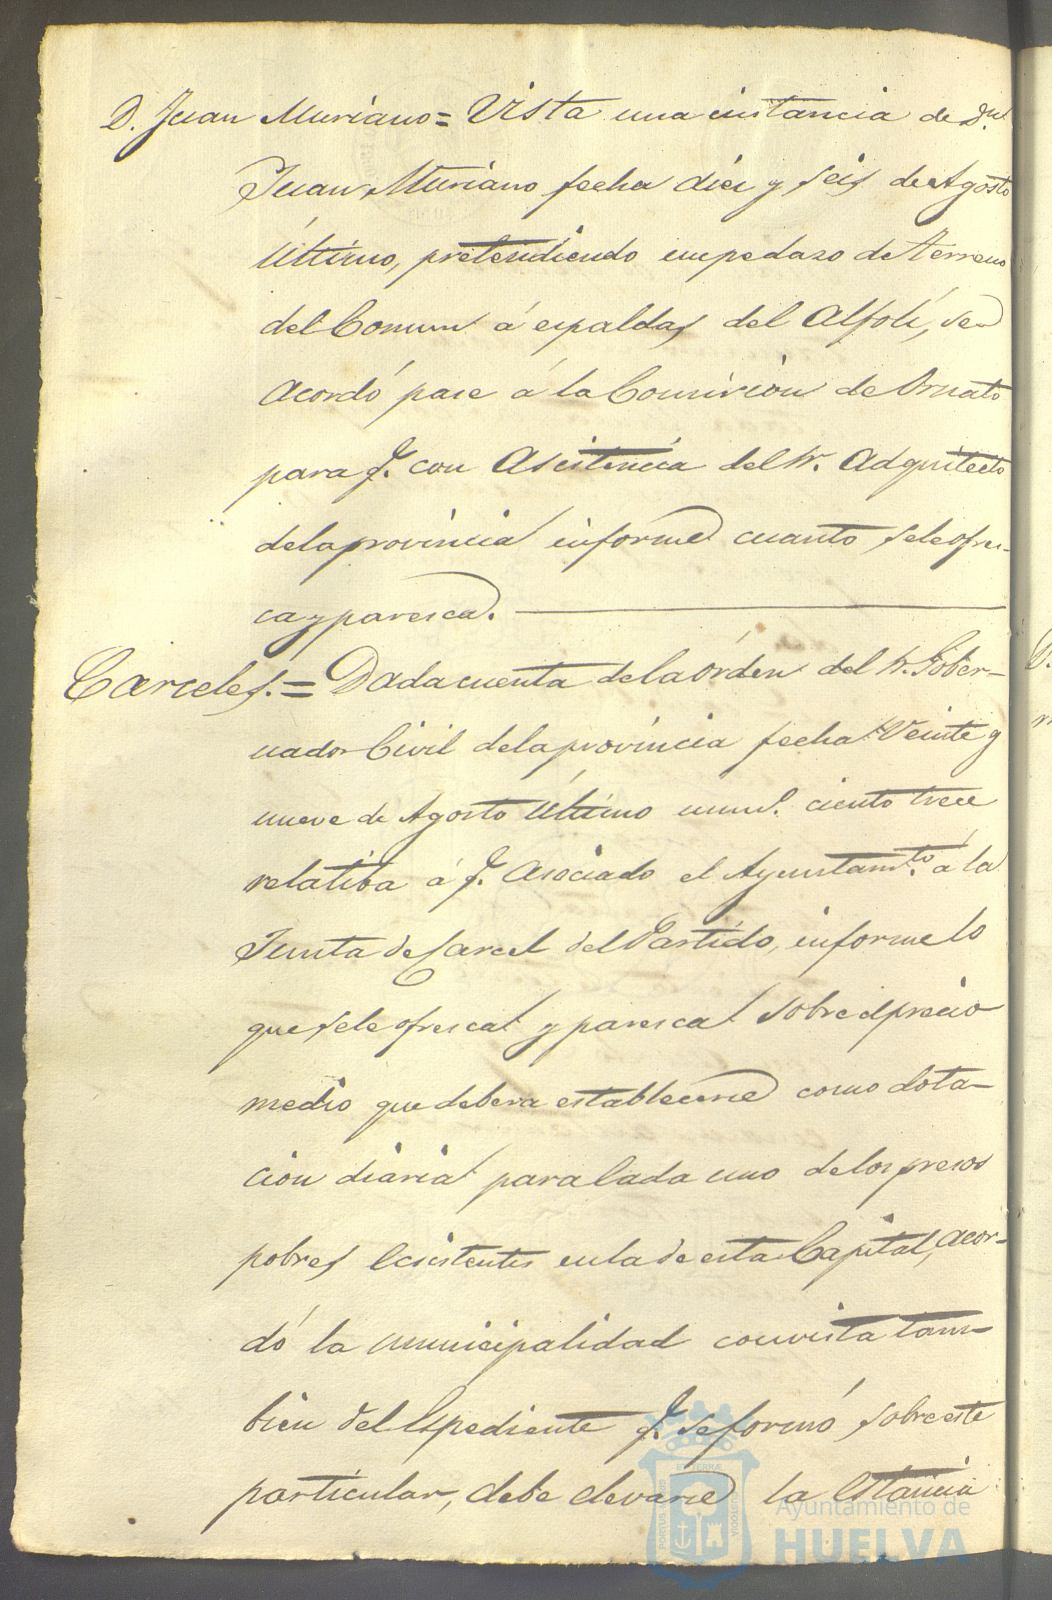 D. Juan Muriano = Vista una instancia de Dn.
Juan Muriano fecha diez y seis de Agosto
último, pretendiendo un pedazo de terreno
del Comun á espaldas del Alfolí, se
acordó pase á la Comision de Ornato
para q. con Asistencia del Sr. Adquitecto
de la provincia informe cuanto se le ofres-
ca y paresca.
Carceles. = Dada cuenta de la órden del Sr. Gober-
nador Civil de la provincia fecha Veinte y
nueve de Agosto último num. ciento trece
relatiba á q. asociado el Ayuntamto. á la
Junta de Carcel del Partido, informe lo
que se le ofresca y paresca sobre el precio
medio que debera establecerse como dota-
cion diaria para Cada uno de los presos
pobres ecsistentes en la de esta Capital, acor-
dó la municipalidad con vista tam-
bien del Espediente q. se formó sobre este
particular, debe elevarse la estancia
Ayuntamiento de
HUELVA
PORTUS MARIS ET TERRAE CUSTODIA